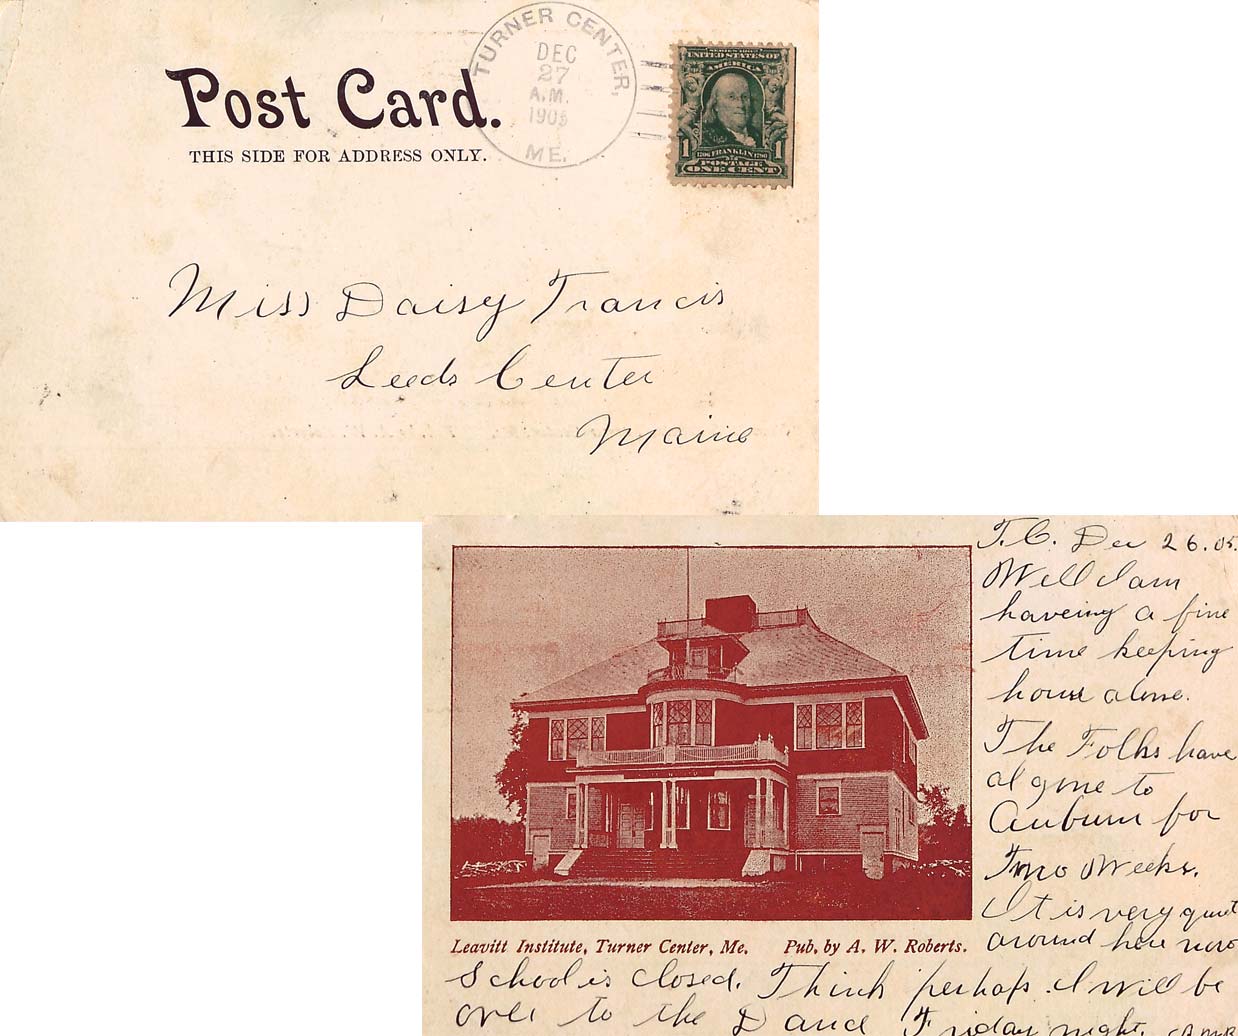 TURNER CENTER,
DEC
27
A.M.
1905
ME.
SERIES 1902
UNITED STATES OF
AMERICA
1 1
1706 FRANKLIN 1790
POSTAGE
ONE CENT
Post Card.
THIS SIDE FOR ADDRESS ONLY.
Miss Daisy Francis
Leeds Center
Maine
T.C. Dec 26.05.
Well I am
haveing a fine
time keeping
house alone.
The Folks have
al gone to
Auburn for
Two Weeks.
It is very quiet
around here now
School is closed. Think perhaps I will be
over to the Dance Friday night.
Leavitt Institute, Turner Center, Me. Pub. by A. W. Roberts.